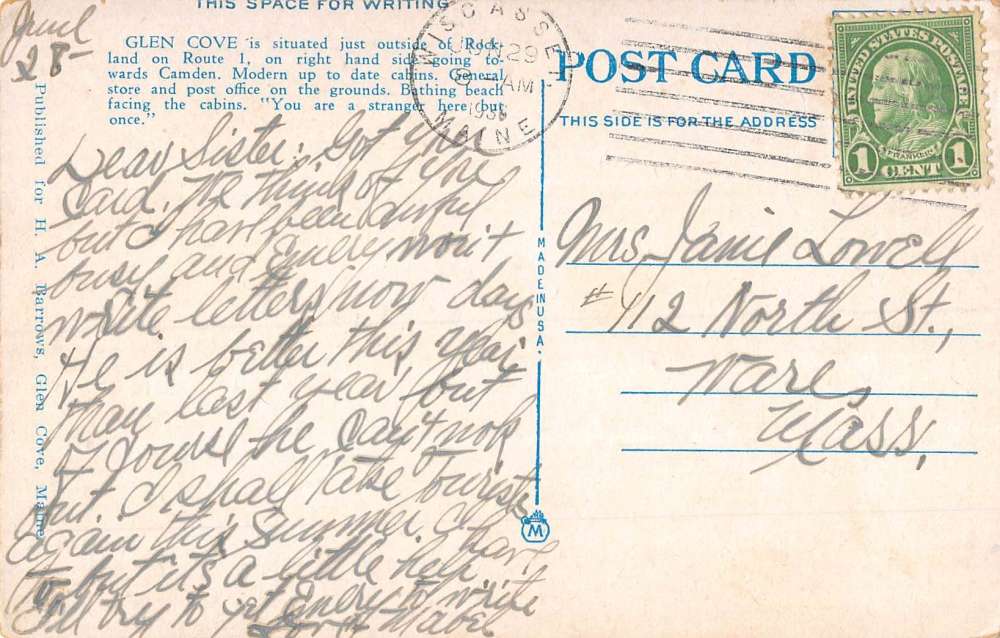 THIS SPACE FOR WRITING
June
28
GLEN COVE is situated just outside of Rock-
land on Route 1, on right hand side going to-
wards Camden. Modern up to date cabins. General
store and post office on the grounds. Bathing beach
facing the cabins. "You are a stranger here but
once."
Published for H. A. Barrows, Glen Cove, Maine
Dear Sister: Got your
card. We think of you
but I have been awful
busy and Emery won't
write letters now days
He is better this year
than last year but
of course he can't work
but. I shall take tourists
again this Summer. I have
to, but it's a little help
I'll try to get Emery to write
Love Mabel
MADE IN U.S.A.
M
WISCASSET
29
AM
MAINE
POST CARD
THIS SIDE IS FOR THE ADDRESS
UNITED STATES POSTAGE
FRANKLIN
1 CENT 1
Mrs. Janie Lowell
#112 North St.,
Ware,
Mass.